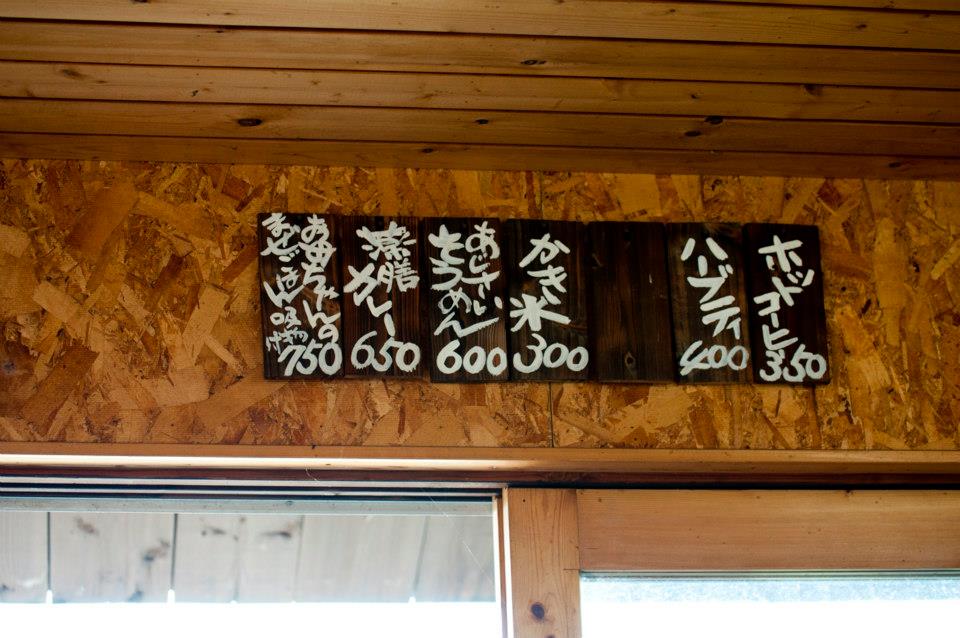 ホットコーヒー
350
ハーブティ
400
かき氷
300
あじさい
そうめん
600
薬膳
カレー
650
ちゃんの
まぜごはん
750